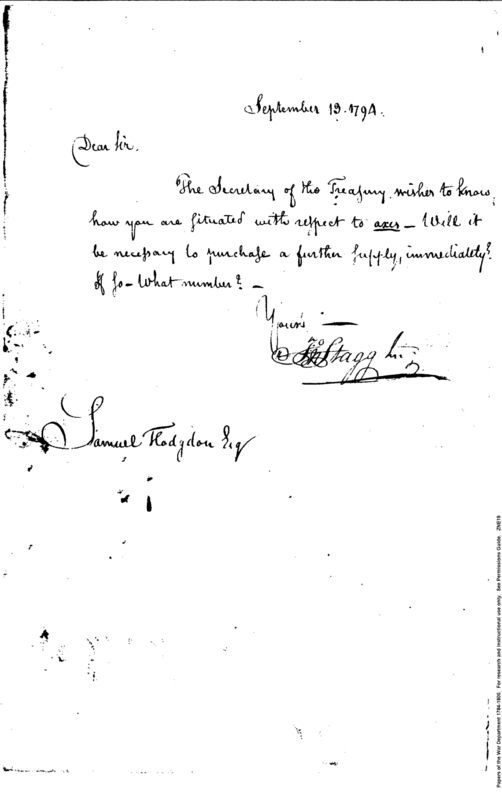 September 19. 1794.
Dear Sir.
The Secretary of the Treasury, wishes to know,
how you are situated with respect to axes – Will it
be necessary to purchase a further supply, immediately?
If so – What number? –
Yours
Jno Stagg Jr.
Samuel Hodgdon Esq
Papers of the War Department 1784-1800. For research and instructional use only. See Permissions Guide. ZNE18